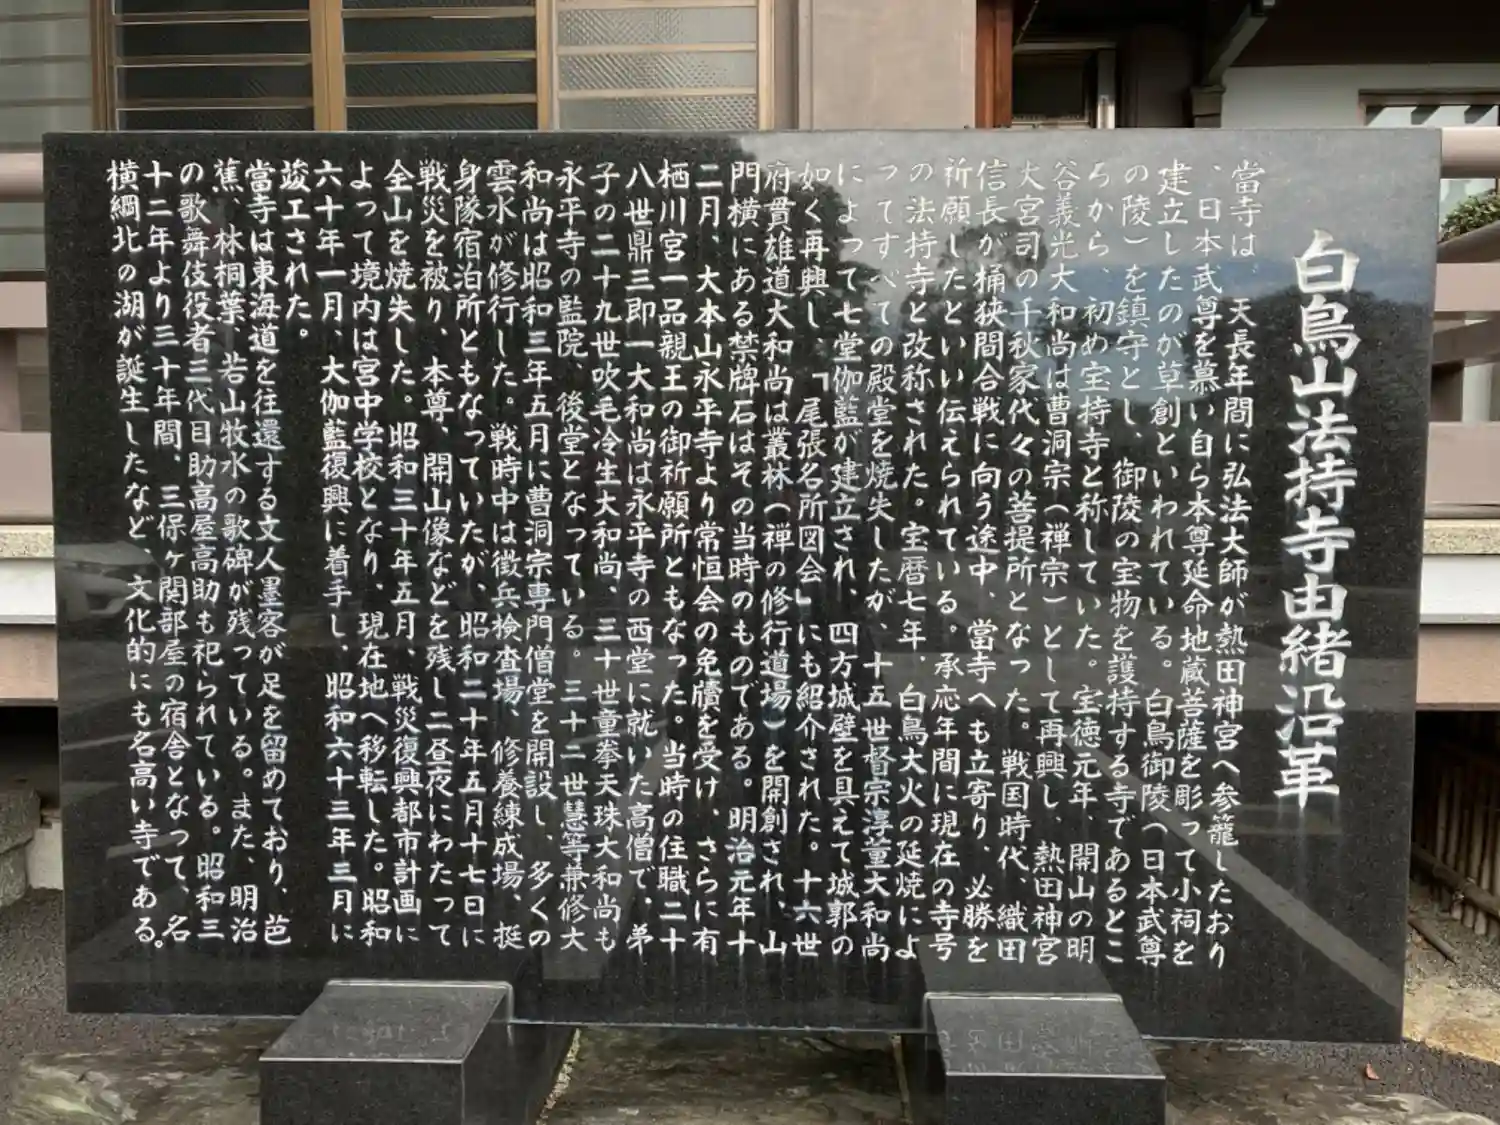 白鳥山法持寺由緒沿革
當寺は、天長年間に弘法大師が熱田神宮へ参籠したおり
、日本武尊を慕い自ら本尊延命地蔵菩薩を彫って小祠を
建立したのが草創といわれている。白鳥御陵(日本武尊
の陵)を鎮守とし、御陵の宝物を護持する寺であるとこ
ろから、初め宝持寺と称していた。宝徳元年、開山の明
谷義光大和尚は曹洞宗(禅宗)として再興し、熱田神宮
大宮司の千秋家代々の菩提所となった。戦国時代、織田
信長が桶狭間合戦に向う途中、當寺へも立寄り、必勝を
祈願したといい伝えられている。承応年間に現在の寺号
の法持寺と改称された。宝暦七年、白鳥大火の延焼によ
ってすべての殿堂を焼失したが、十五世督宗淳董大和尚
によって七堂伽藍が建立され、四方城壁を具えて城郭の
如く再興し、「尾張名所図会」にも紹介された。十六世
府貫雄道大和尚は叢林(禅の修行道場)を開創され、山
門横にある禁牌石はその当時のものである。明治元年十
二月、大本山永平寺より常恒会の免牘を受け、さらに有
栖川宮一品親王の御祈願所ともなった。当時の住職二十
八世鼎三即一大和尚は永平寺の西堂に就いた高僧で、弟
子の二十九世吹毛冷生大和尚、三十世童拳天珠大和尚も
永平寺の監院、後堂となっている。三十二世慧等兼修大
和尚は昭和三年五月に曹洞宗専門僧堂を開設し、多くの
雲水が修行した。戦時中は徴兵検査場、修養練成場、挺
身隊宿泊所ともなっていたが、昭和二十年五月十七日に
戦災を被り、本尊、開山像などを残し二昼夜にわたって
全山を焼失した。昭和三十年五月、戦災復興都市計画に
よって境内は宮中学校となり、現在地へ移転した。昭和
六十年一月、大伽藍復興に着手し、昭和六十三年三月に
竣工された。
當寺は東海道を往還する文人墨客が足を留めており、芭
蕉、林桐葉、若山牧水の歌碑が残っている。また、明治
の歌舞伎役者三代目助高屋高助も祀られている。昭和三
十二年より三十年間、三保ヶ関部屋の宿舎となって、名
横綱北の湖が誕生したなど、文化的にも名高い寺である。